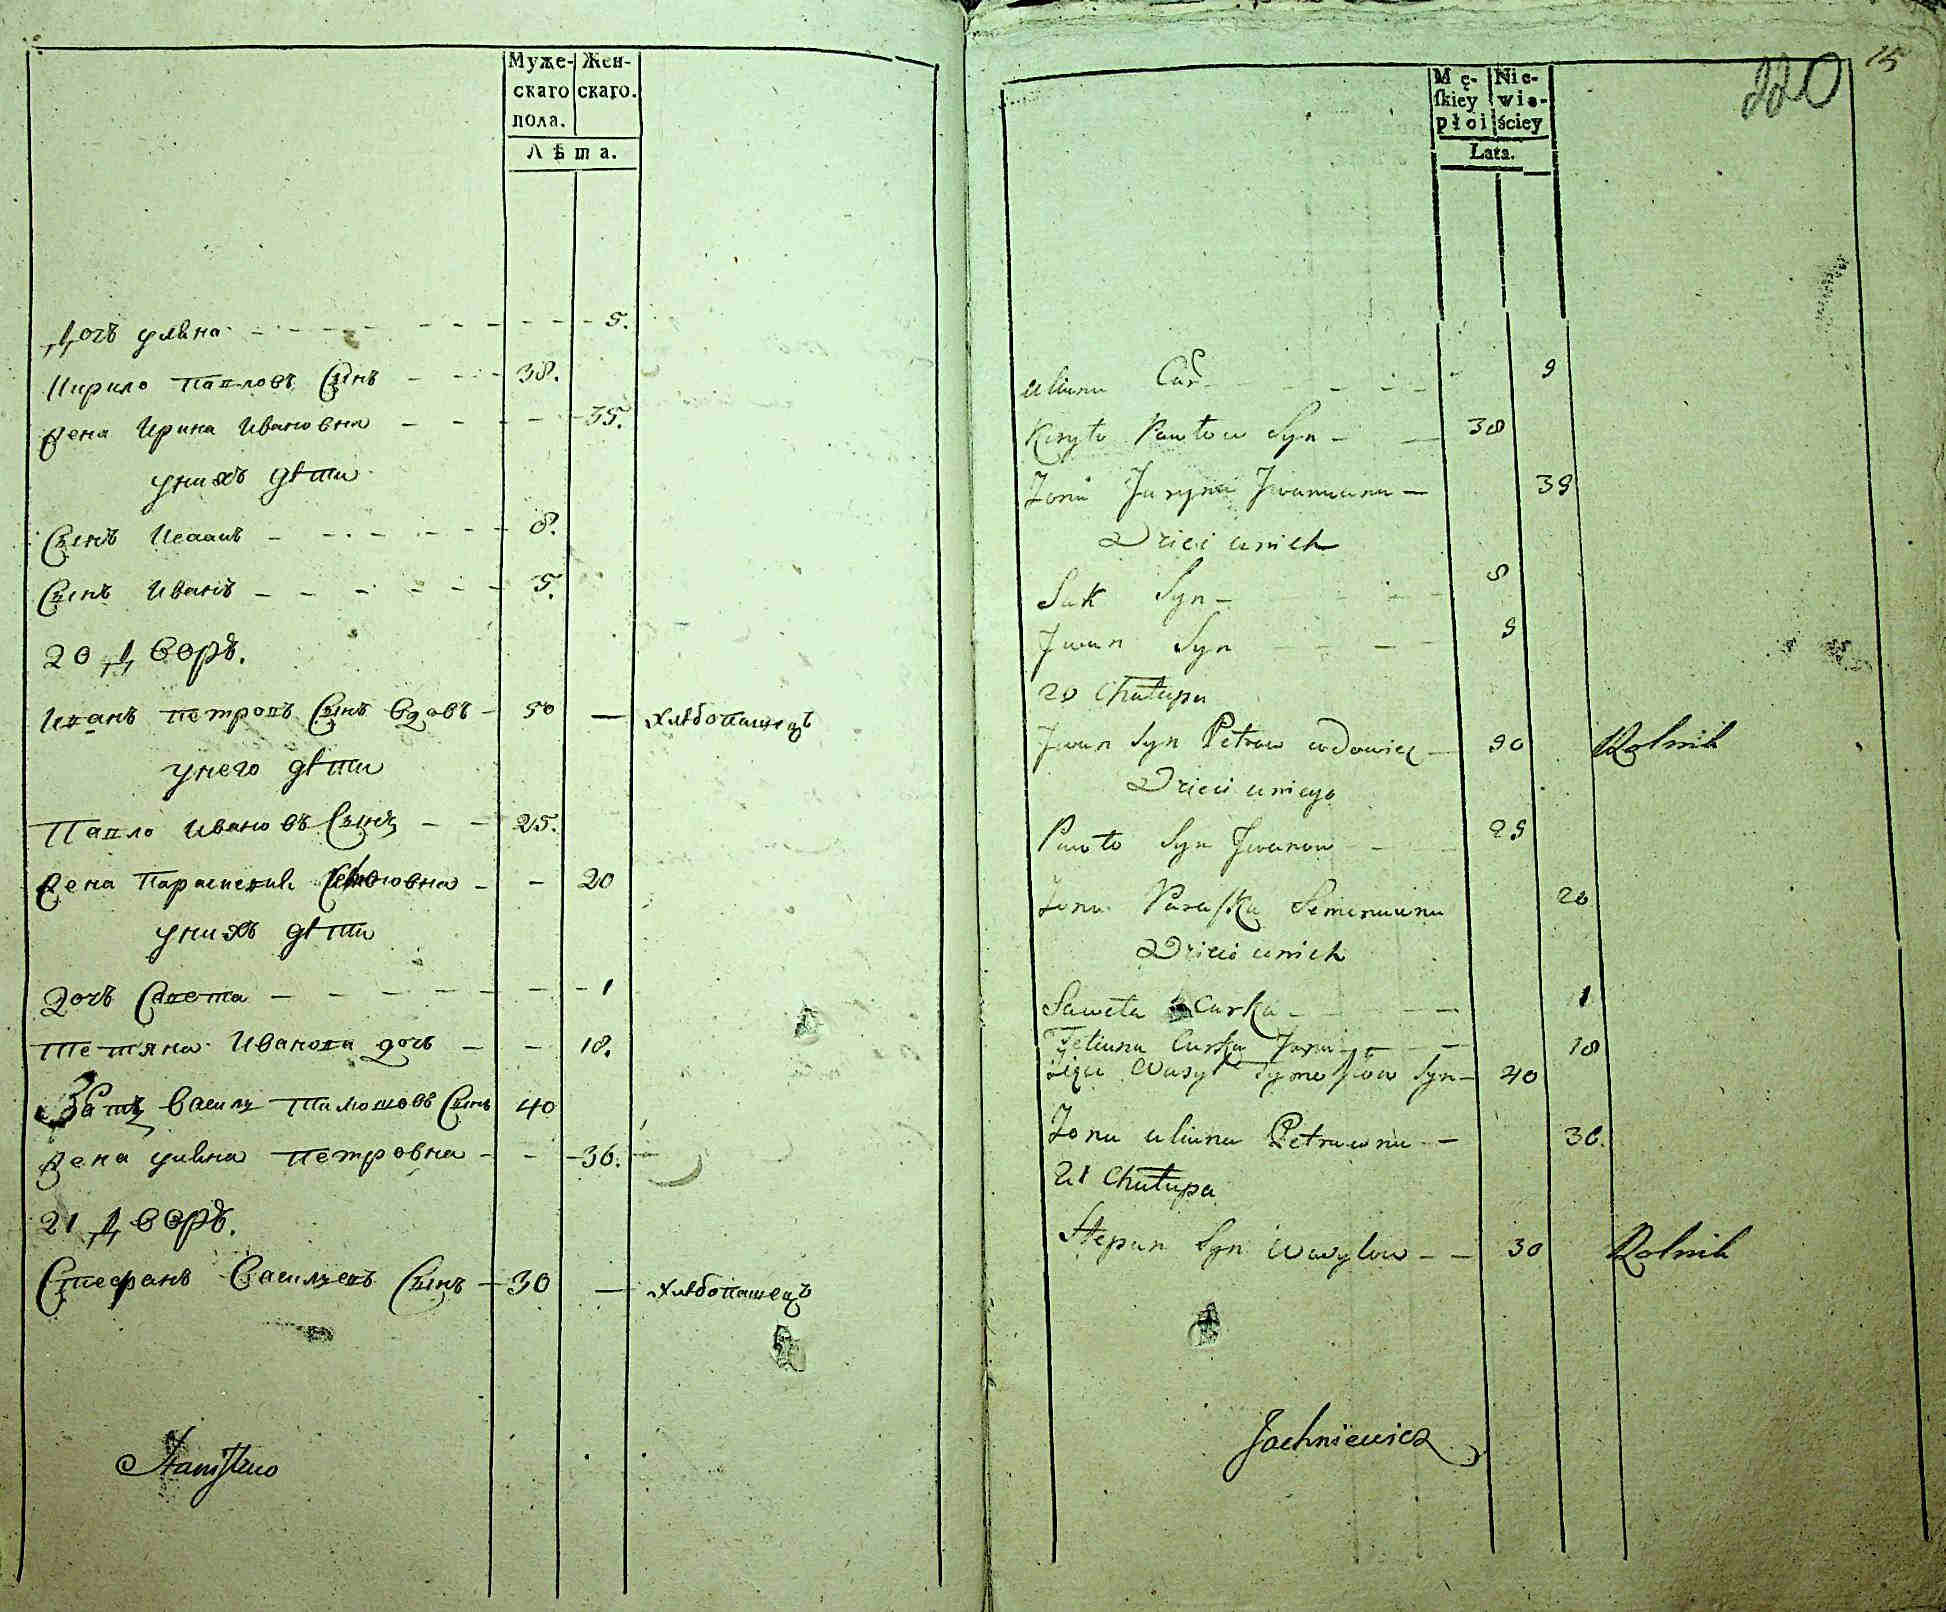 Муже-
скаго
пола.
Жен-
скаго.
Лѣта.
Дочь улѣна 5.
Кирило Павловъ Сынъ 38.
Жена Ирина Ивановна 35.
унихъ дѣти
Сынъ Исаакъ 8.
Сынъ Иванъ 5.
20 Дворъ.
Иванъ Петровъ Сынъ вдовъ 50 — хлѣбопашецъ
унего дѣти
Павло Ивановъ Сынъ 25.
Жена Параскевия 20
унихъ дѣти
дочь Савета 1
Тетяна Иванова дочь 18.
Зать Василь Тимошовъ Сынъ 40
Жена улѣна Петровна 36.
21 Дворъ.
Стефанъ Васильевъ Сынъ 30 — хлѣбопашецъ
Stanisław
220
15
Mę-
skiey
płci
Nie-
wie-
ściey
Lata.
Uliana Cur 5
Kiryło Pawłow Syn 38
Zona Jaryna Iwanowna 35
Dzieci unich
Sak Syn 8
Iwan Syn 5
20 Chałupa
Iwan Syn Petrow wdowiec 50 Rolnik
Dzieci uniego
Pawło Syn Iwanow 25
Zona Paraska Semenowna 20
Dzieci unich
Saweta Curka 1
Tetiana Curka 18
Wasyl Syn 40
Zona Uliana Petrowna 36.
21 Chałupa
Stepan Syn Wasylow 30 Rolnik
Jachniewicz